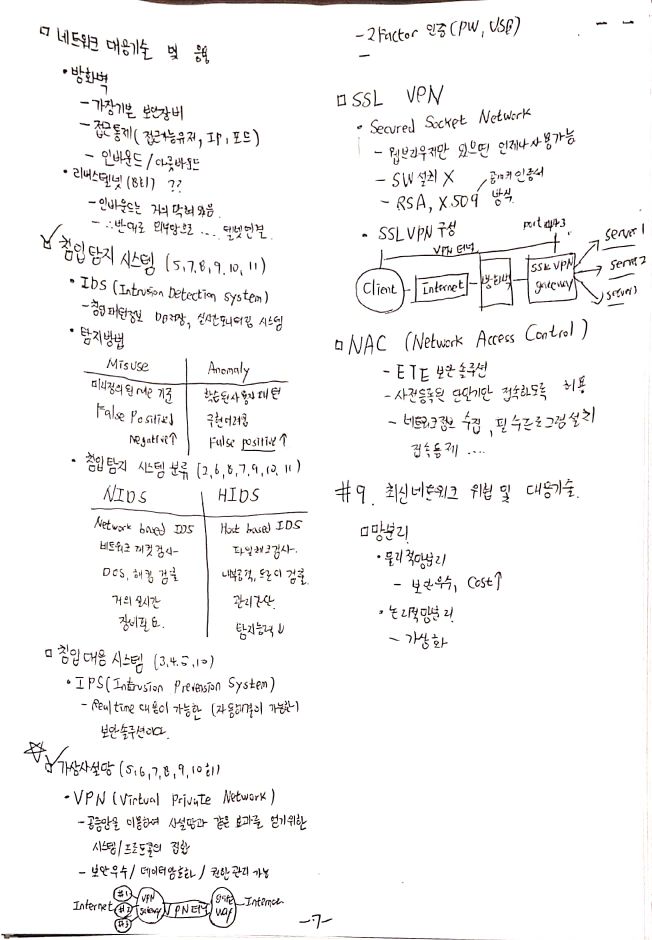 □ 네트워크 대응기술 및 응용
• 방화벽
- 가장기본 보안장비
- 접근통제 (접근가능유저, IP, 포트)
- 인바운드 / 아웃바운드
• 리버스텔넷 (8회) ??
- 인바운드는 거의 막혀 있음
- ∴ 반대로 외부망으로 .... 텔넷연결
□ 침입탐지 시스템 (5,7,8,9,10,11)
• IDS (Intrusion Detection System)
- 침입패턴정보 DB저장, 실시간모니터링 시스템
• 탐지방법
Misuse | Anomaly
미리정의된 Rule 기준 | 학습된 사용자 패턴
False Positive↓ | 구현어려움
Negative↑ | False positive↑
• 침입탐지 시스템 분류 (2,6,8,7,9,10,11)
NIDS | HIDS
Network based IDS | Host based IDS
네트워크 패킷검사 | 파일체크검사
DOS, 해킹 검출 | 내부공격, 트로이 검출
거의 실시간 | 관리간단
장비필요. | 탐지능력↓
□ 침입대응 시스템 (3,4,5,10)
• IPS (Intrusion Prevension System)
- Real time 대응이 가능한 (자동해결이 가능한)
보안솔루션이다.
☆ □ 가상사설망 (5,6,7,8,9,10회)
• VPN (Virtual Private Network)
- 공중망을 이용하여 사설망과 같은 효과를 얻기위한
시스템/프로토콜의 집합
- 보안우수 / 데이터암호화 / 권한관리 가능
#1
Internet #2 VPN gateway VPN터널 Internet
#3
- 2 Factor 인증 (PW, USB)
-
□ SSL VPN
• Secured Socket Network
- 웹브라우저만 있으면 언제나 사용가능
- SW 설치 X
공개키인증서
- RSA, X.509 방식
• SSL VPN 구성
VPN 터널 port 443
Client Internet 방화벽 SSL VPN gateway
Server 1
Server 2
Server 3
□ NAC (Network Access Control)
- ETE 보안솔루션
- 사전등록된 단말기만 접속하도록 허용
- 네트워크정보 수집, 필수프로그램설치
접속통제 ....
#9. 최신네트워크 위협 및 대응기술.
□ 망분리
• 물리적망분리
- 보안우수, Cost↑
• 논리적망분리.
- 가상화
-7-